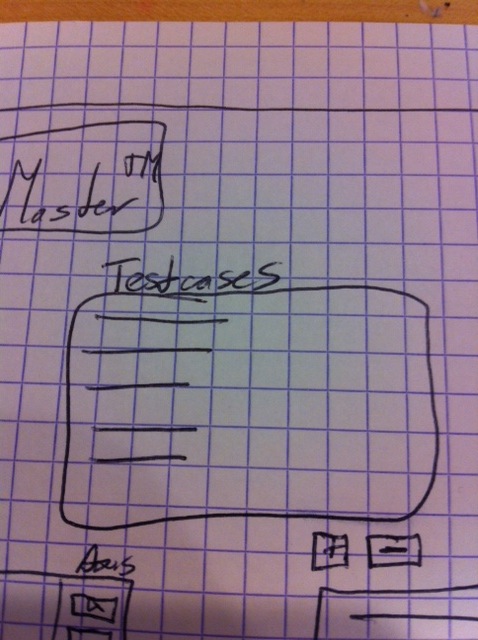 Master TM
Testcases
+ −